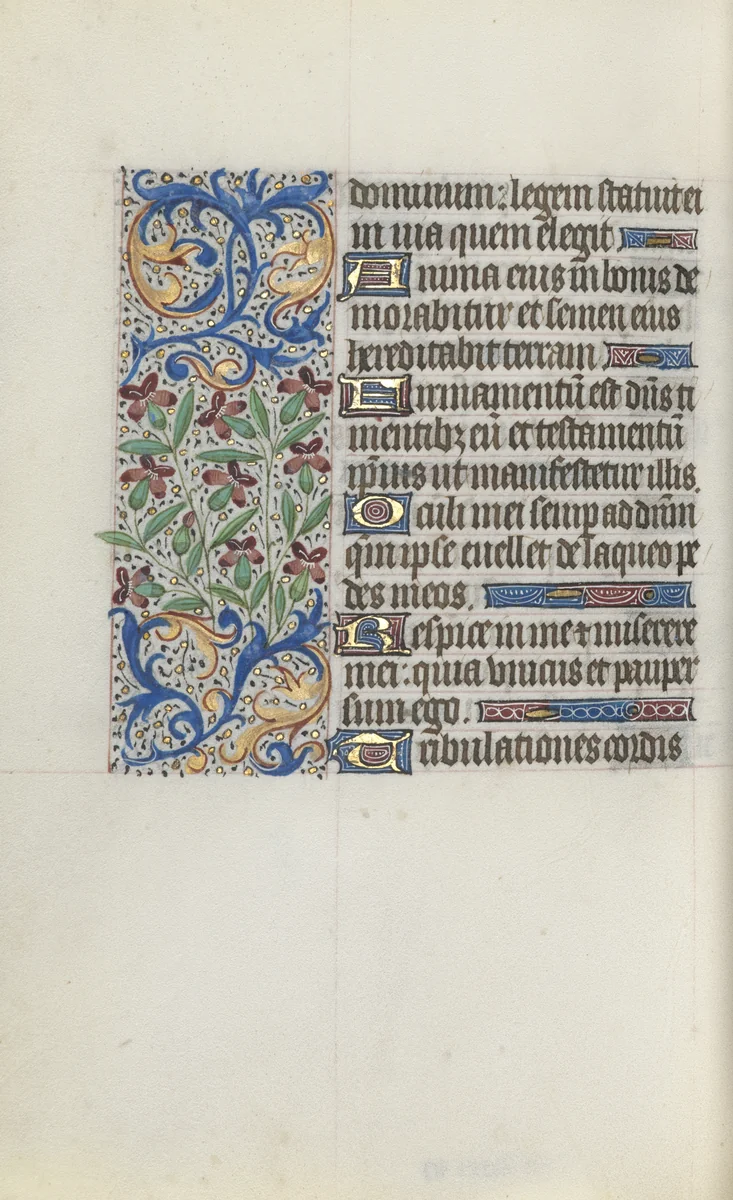 dominum: legem statuit ei
in uia quem elegit
Anima eius in bonis de
morabitur et semen eius
hereditabit terram
Firmamentū est dūs ti
mentibȝ eū et testamentū
ipīus ut manifestetur illis.
Oculi mei semp ad dn̄m
qm̄ ipse euellet de laqueo pe
des meos.
Respice in me ⁊ miserere
mei: quia vnicus et pauper
sum ego.
Tribulationes cordis